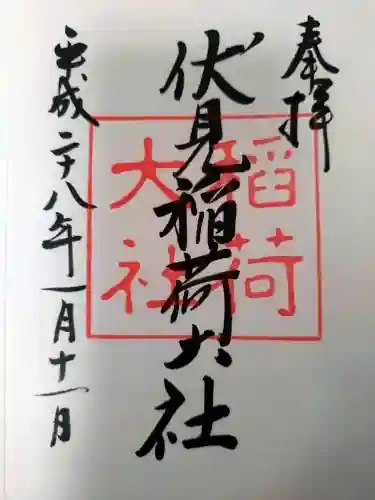 奉拝
伏見稲荷大社
稲荷
大社
平成二十八年一月十一日